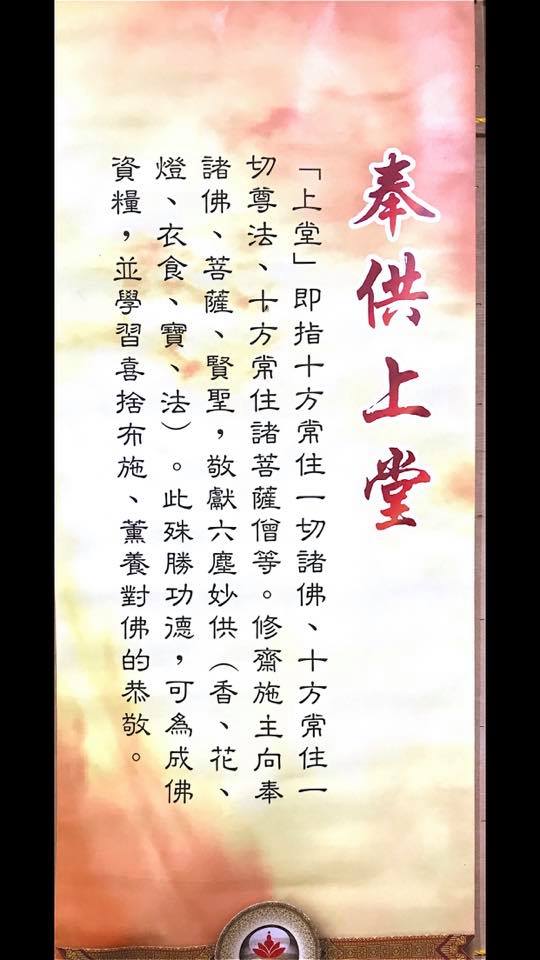 奉供上堂
「上堂」即指十方常住一切諸佛、十方常住一
切尊法、十方常住諸菩薩僧等。修齋施主向奉
諸佛、菩薩、賢聖，敬獻六塵妙供（香、花、
燈、衣食、寶、法）。此殊勝功德，可為成佛
資糧，並學習喜捨布施、薰養對佛的恭敬。